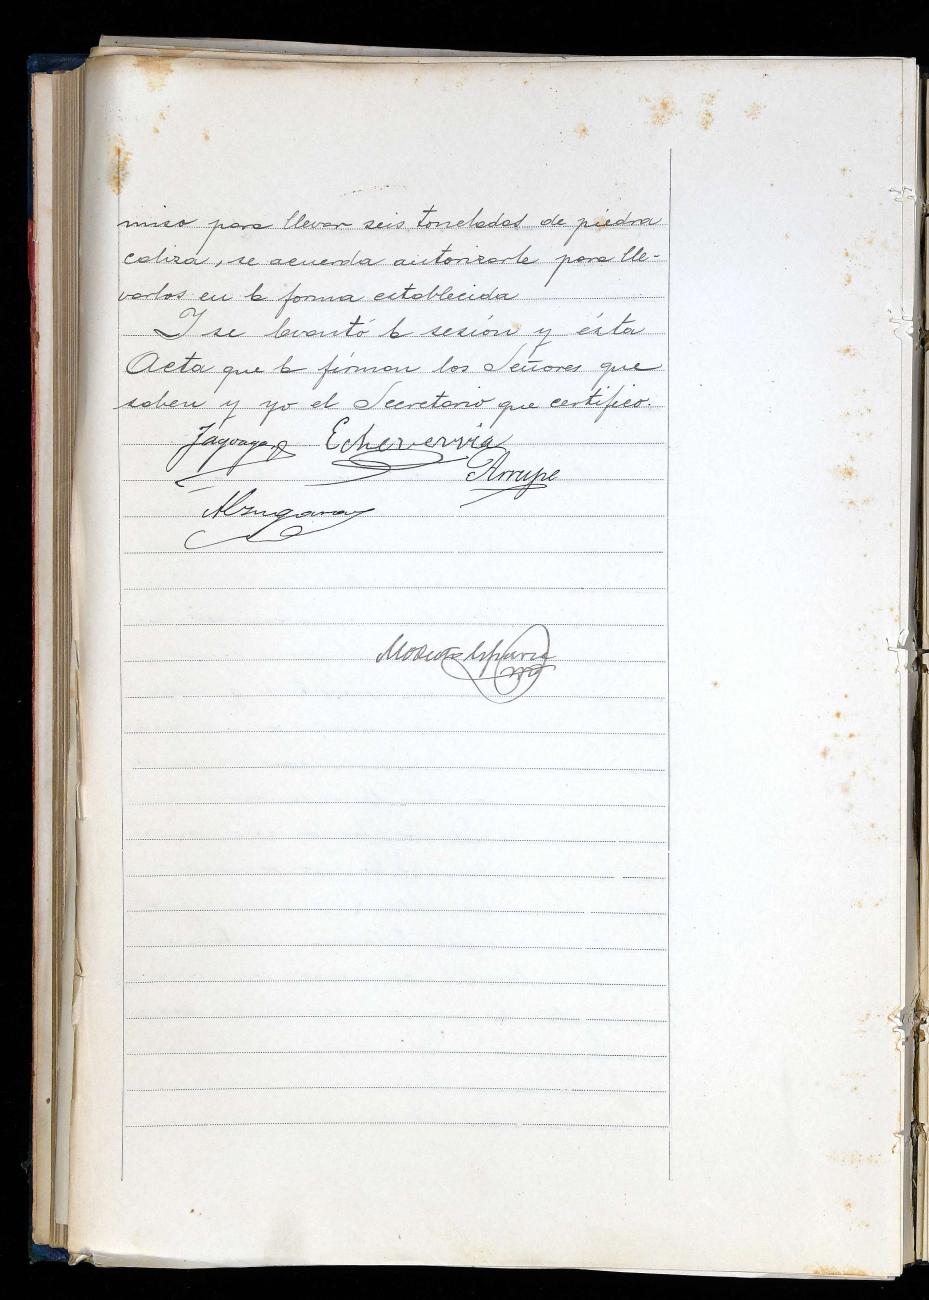 miso para llevar seis toneladas de piedra
caliza, se acuerda autorizarle para lle-
varlos en la forma establecida
Y se levantó la sesión y ésta
Acta que la firman los Señores que
saben y yo el Secretario que certifico.
Echeverria
Arrupe